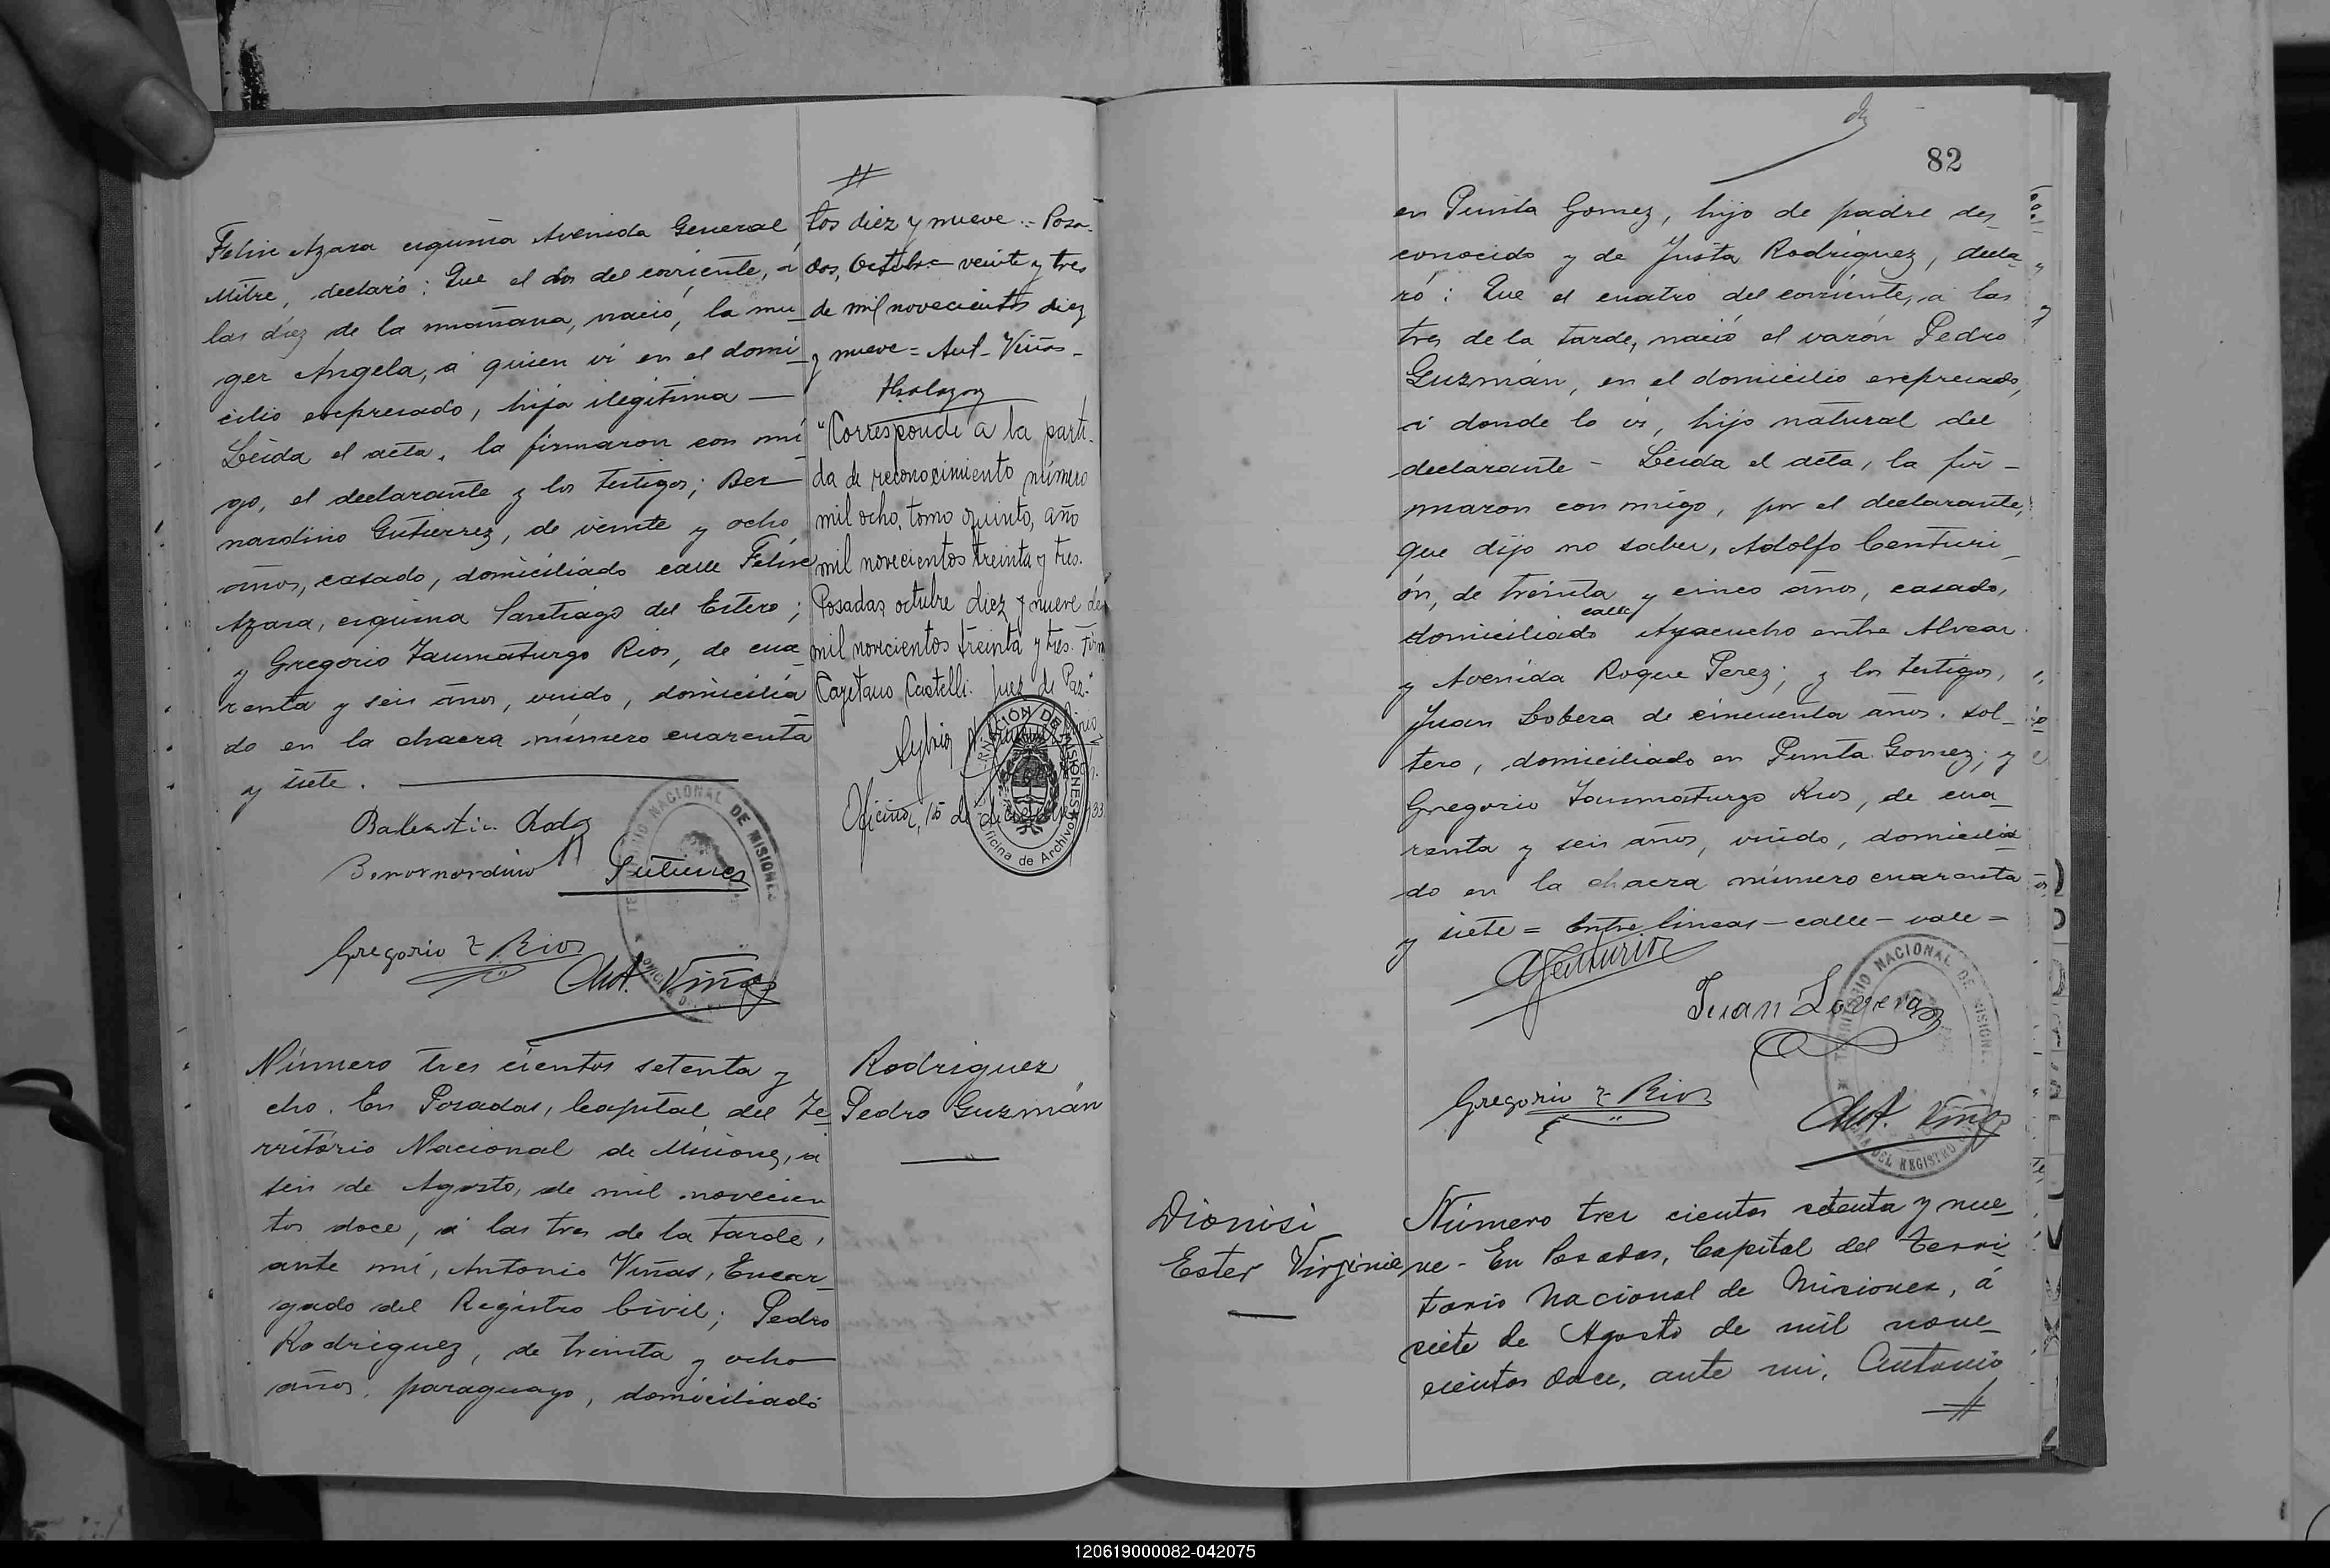 Felix Azara esquina Avenida General
Mitre, declaró: Que el dos del corriente, á
las diez de la mañana, nació, la mu_
ger Angela, á quien vi en el domi_
cilio expresado, hija ilegitima —
Leida el acta, la firmaron con mi_
go, el declarante y los testigos; Ber_
nardino Gutierrez, de veinte y ocho
años, casado, domiciliado calle Felix
Azara, esquina Santiago del Estero;
y Gregorio Taumaturgo Rios, de cua_
renta y seis años, viudo, domicilia_
do en la chacra número cuarenta
y siete.
Gregorio T Rios
Ant. Viñas
tos diez y nueve = Posa_
das, Octubre veinte y tres
de mil novecientos diez
y nueve = Ant. Viñas
"Corresponde a la parti_
da de reconocimiento número
mil ocho, tomo quinto, año
mil novecientos treinta y tres.
Posadas, octubre diez y nueve de
mil novecientos treinta y tres.
Cayetano Castelli. Juez de Paz."
Oficina, 15 de diciembre 933
TERRITORIO NACIONAL DE MISIONES
Oficina de Archivo
Número tres cientos setenta y
cho. En Posadas, Capital del Te_
rritório Nacional de Misiones, á
seis de Agosto, de mil novecien_
tos doce, á las tres de la tarde,
ante mi, Antonio Viñas, Encar_
gado del Registro Civil; Pedro
Rodriguez, de treinta y ocho
años, paraguayo, domiciliado
Rodriguez
Pedro Guzmán
82
en Punta Gomez, hijo de padre des_
conocido y de Justa Rodriguez, decla_
ró: Que el cuatro del corriente, á las
tres de la tarde, nació el varón Pedro
Guzmán, en el domicilio expresado,
á donde lo vi, hijo natural del
declarante – Leida el acta, la fir_
maron con migo, por el declarante,
que dijo no saber, Adolfo Centuri_
ón, de treinta y cinco años, casado,
domiciliado calle Ayacucho entre Alvear
y Avenida Roque Perez; y los testigos,
Juan Lobera de cincuenta años, sol_
tero, domiciliado en Punta Gomez; y
Gregorio Taumaturgo Rios, de cua_
renta y seis años, viudo, domicilia
do en la chacra número cuarenta
y siete = Entre lineas – calle – vale =
Juan Lovera
Gregorio T Rios
Ant. Viñas
TERRITORIO NACIONAL DE MISIONES
DEL REGISTRO
Dionisi
Ester Virginia
Número tres cientos setenta y nue_
ve – En Posadas, Capital del Terri_
torio Nacional de Misiones, á
siete de Agosto de mil nove_
cientos doce, ante mi, Antonio
120619000082-042075